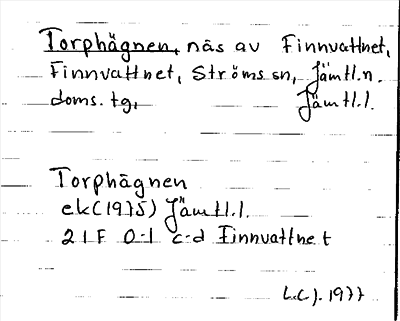 Torphägnen, näs av Finnvattnet,
Finnvattnet, Ströms sn, Jämtl.n.
doms. tg, Jämtl.l.
Torphägnen
ek (1975) Jämtl.l.
21F 0-1 c-d Finnvattnet
1977